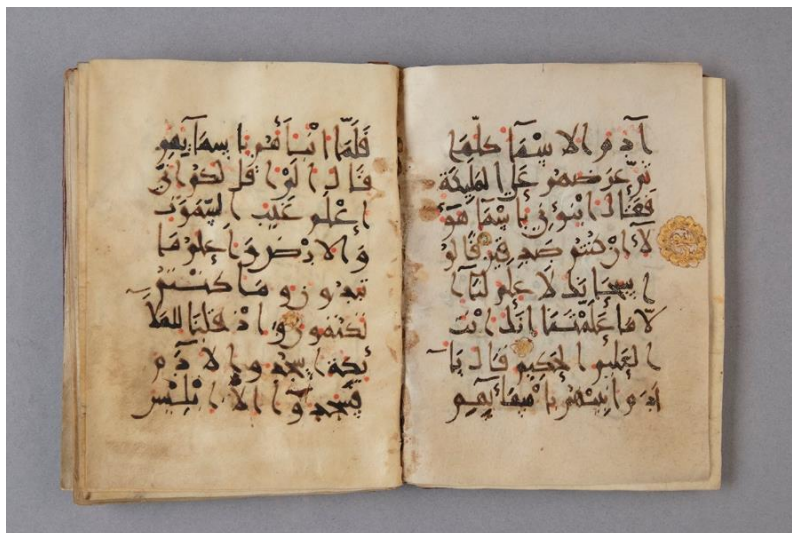 آدم الاسمآ كلّها
ثمّ عرضهم على الملئكة
فقال انبؤنى باسمآ هؤ
لآ ان كنتم صدقين قالو
ا سبحانك لا علم لنآ ا
لّا ما علّمتنآ انّك انت
العليم الحكيم قال يا
ادم انبئهم باسمآئهم
فلمّا انبأهم باسمآئهم
قال الم اقل لكم انّى
اعلم غيب السّموت
والارض واعلم ما
تبدون وما كنتم
تكتمون واذ قلنا للملا
ئكة اسجدوا لآدم
فسجدوآ الّا ابليس